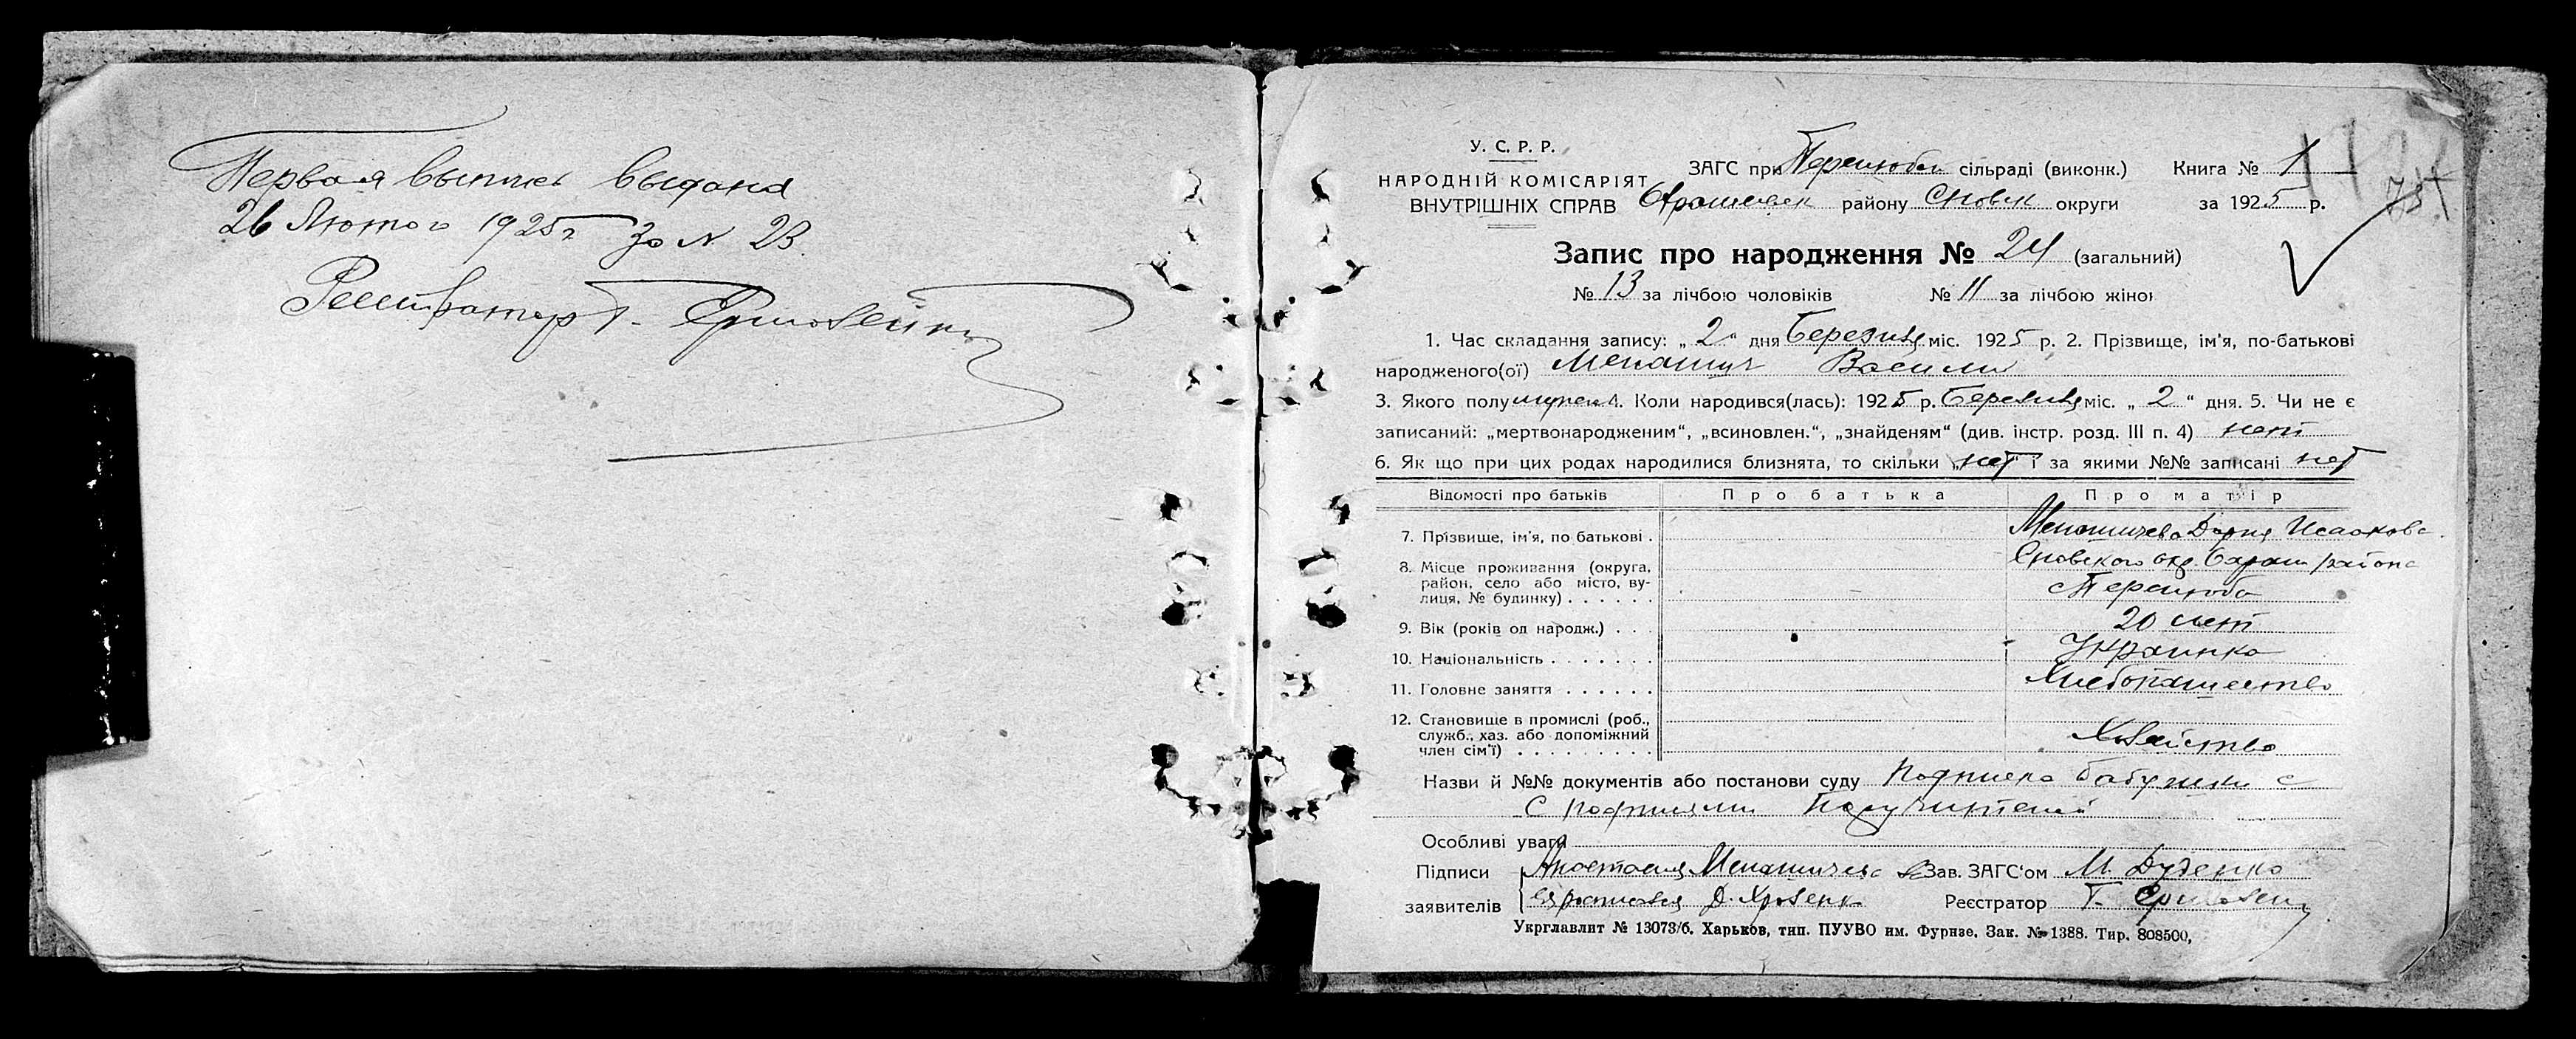 Первая выпись выдана
26 Лютого 1925 г за № 23
Регистратор Г.
У. С. Р. Р.
НАРОДНІЙ КОМІСАРІЯТ
ВНУТРІШНІХ СПРАВ
ЗАГС при сільраді (виконк.) Книга № 1
району Сновск округи за 1925 р.
Запис про народження № 24 (загальний)
№ 13 за лічбою чоловіків № 11 за лічбою жінок
1. Час складання запису: „2“ дня Березня міс. 1925 р. 2. Прізвище, ім'я, по-батькові
народженого(ої) Василий
3. Якого полу мужск 4. Коли народився(лась): 1925 р. Березня міс. „2“ дня. 5. Чи не є
записаний: „мертвонародженим“, „всиновлен.“, „знайденям“ (див. інстр. розд. III п. 4) нет
6. Як що при цих родах народилися близнята, то скільки „нет“ і за якими №№ записані нет
Відомості про батьків Про батька Про матір
7. Прізвище, ім'я, по батькові . Дарья Исаакова
8. Місце проживання (округа, Сновского окр. района
район, село або місто, ву-
лиця, № будинку) . . . . . .
9. Вік (років од народж.) . . . 20 лет
10. Національність . . . . . . . Украинка
11. Головне заняття . . . . . . Хлебопашество
12. Становище в промислі (роб.,
служб., хаз. або допоміжний Хозяйство
член сім'ї) . . . . . . . . .
Назви й №№ документів або постанови суду Подписка бабушки с
с подписями
Особливі уваги
Підписи Анастасия Зав. ЗАГС'ом М. Дуденко
заявителів Реєстратор Г.
Укрглавлит № 13073/б. Харьков, тип. ПУУВО им. Фурнзе. Зак. № 1388. Тир. 808500,